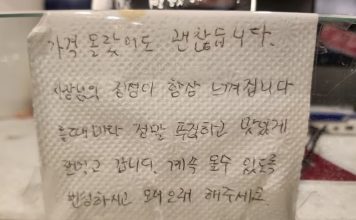 가격 올랐어도 괜찮습니다.
사장님의 친절이 항상 느껴집니다
올때마다 정말 푸짐하고 맛있게
먹고 갑니다. 계속 올수 있도록
번창하시고 오래오래 해주세요.